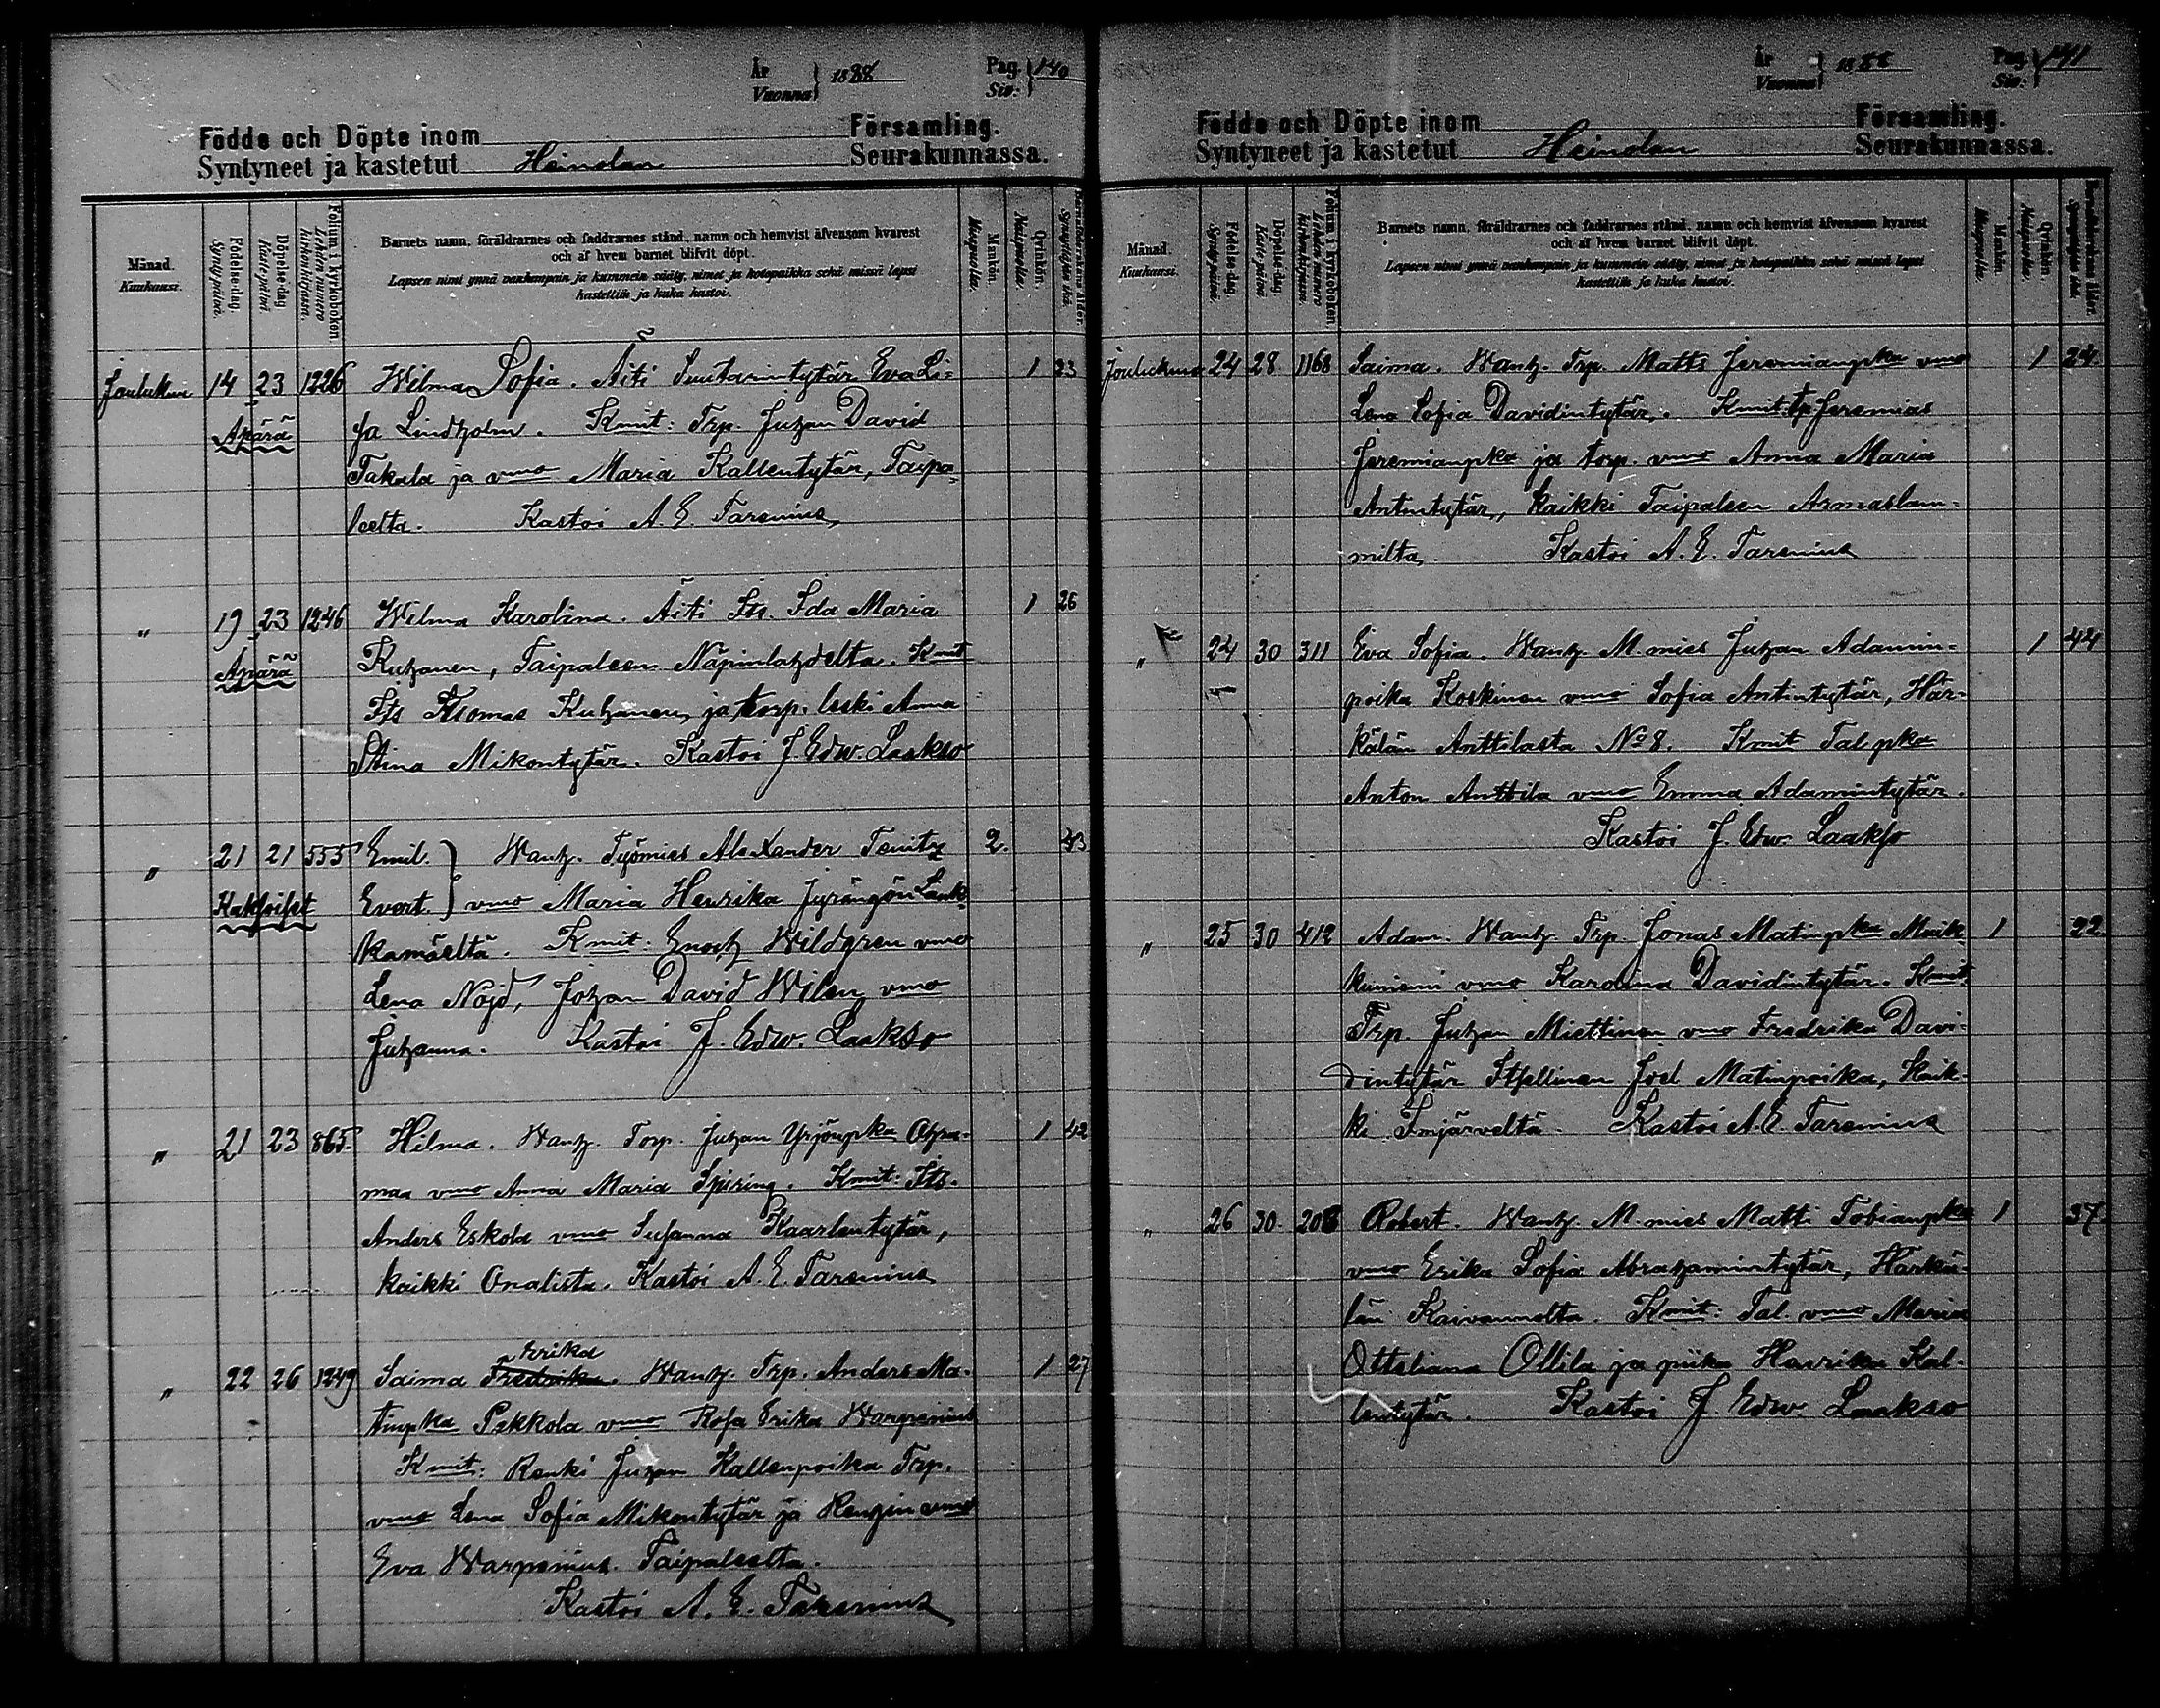 År
Vuonna } 1888
Pag.
Siv: } 140
Födde och Döpte inom Församling.
Syntyneet ja kastetut Heinolan Seurakunnassa.
Månad.
Kuukausi.
Födelse-dag.
Syntypäivä.
Döpelse-dag
Kaste-päivä
Folium i kyrkoboken
Lehden numero
kirkonkirjassa.
Barnets namn, föräldrarnes och faddrarnes stånd, namn och hemvist äfvensom hvarest
och af hvem barnet blifvit döpt.
Lapsen nimi ynnä vanhempain ja kummein sääty, nimet ja kotopaikka sekä missä lapsi
kastettiin ja kuka kastoi.
Mankön.
Miespuolia.
Qvinkön.
Naispuolia.
Barnaföderskans ålder.
Synnyttäjän ikä.
Joulukuu 14 23 1226 Wilma Sofia. Äiti Suutarintytär Eva Li= 1 23
Äpärä sa Lindholm. Kmit: Trp. Juhan David
Takala ja vmo Maria Kallentytär, Taipa=
leelta. Kastoi A. E. Tarenius
" 19 23 1246 Wilma Karolina. Äiti Its. Ida Maria 1 26
Äpärä Kuhanen, Taipaleen Näpinlahdelta. Kmit
Its Thomas Kuhanen, ja torp. leski Anna
Stina Mikontytär. Kastoi J. Edw. Laakso
" 21 21 555 Emil. } Wanh. Työmies Alexander Tenitz 2. 43
Kaksoiset Evert. } vmo Maria Henrika Jyrängön Lank=
kamäeltä. Kmit: Enoch Wildgren vmo
Lena Nöjd, Johan David Wilen vmo
Juhanna. Kastoi J. Edw. Laakso
" 21 23 865. Hilma. Wanh. Torp. Juhan Yrjönpka Ohra- 1 42
maa vmo Anna Maria Spiring. Kmit: Its.
Anders Eskola vmo Susanna Kaarlentytär,
kaikki Onalista. Kastoi A. E. Tarenius
Erika
" 22 26 1249 Saima Fredrika. Wanh. Trp. Anders Ma- 1 27
tinpka Pekkola vmo Rosa Erika Warpenius
Kmit: Renki Juhan Kallenpoika Trp.
vmo Lena Sofia Mikontytär ja Rengin vmo
Eva Warpenius. Taipaleelta.
Kastoi A. E. Tarenius
År
Vuonna } 1888
Pag.
Siv: } 141
Födde och Döpte inom Församling.
Syntyneet ja kastetut Heinolan Seurakunnassa.
Månad.
Kuukausi.
Födelse-dag
Syntypäivä.
Döpelse-dag.
Kaste-päivä
Folium i kyrkoboken.
Lehden numero
kirkonkirjassa.
Barnets namn, föräldrarnes och faddrarnes stånd, namn och hemvist äfvensom hvarest
och af hvem barnet blifvit döpt.
Lapsen nimi ynnä vanhempain ja kummein sääty, nimet ja kotopaikka sekä missä lapsi
kastettiin ja kuka kastoi.
Mankön.
Miespuolia.
Qvinkön.
Naispuolia.
Barnaföderskans ålder.
Synnyttäjän ikä.
Joulukuu 24 28 1168 Saima. Wanh. Trp. Matts Jeremianpka vmo 1 24
Lena Sofia Davidintytär. Kmit Trp Jeremias
Jeremianpka ja torp. vmo Anna Maria
Antintytär, kaikki Taipaleen Armaslam=
milta. Kastoi A. E. Tarenius
" 24 30 311 Eva Sofia. Wanh. M. mies Juhan Adamin= 1 44
poika Koskinen vmo Sofia Antintytär, Här=
kälän Anttilasta No 8. Kmit Tal pka
Anton Anttila vmo Emma Adamintytär.
Kastoi J. Edw. Laakso
" 25 30 412 Adam. Wanh. Trp. Jonas Matinpka Muik= 1 22.
kuniemi vmo Karolina Davidintytär. Kmit.
Trp. Juhan Miettinen vmo Fredrika Davi-
dintytär Itsellinen Joel Matinpoika, Kaik-
ki Imjärveltä. Kastoi A. E. Tarenius
" 26 30. 208 Robert. Wanh. M. mies Matti Tobianpka 1 37.
vmo Erika Sofia Abrahamintytär, Härkä-
län Kaivannolta. Kmit: Tal. vmo Maria
Ottiliana Ollila ja piika Henrika Kal-
lentytär. Kastoi J. Edw. Laakso